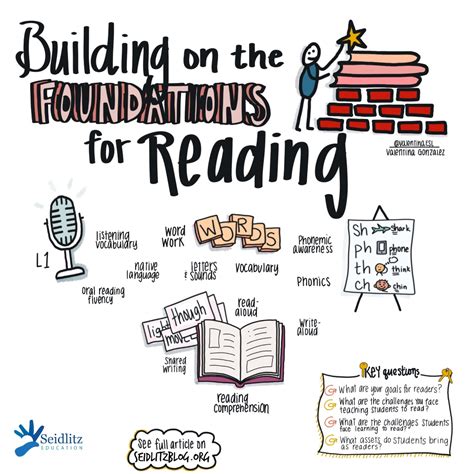 Building on the
FOUNDATIONS
for Reading
@valentinaesl
Valentina Gonzalez
L1
listening
vocabulary
word
work
WORDS
Phonemic
awareness
native
language
letters
& sounds
vocabulary
Phonics
oral reading
fluency
Sh shark
ph phone
th think
ch chin
light
though
mov
shared
writing
read-
aloud
write-
aloud
reading
comprehension
Key questions
What are your goals for readers?
What are the challenges you face
teaching students to read?
What are the challenges students
face learning to read?
What assets do students bring
as readers?
Seidlitz
EDUCATION
See full article on
SEIDLITZBLOG.ORG